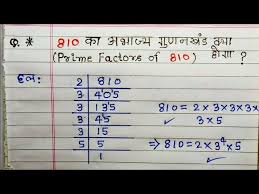 Q.* 810 का अभाज्य गुणनखंड क्या होगा ?
(Prime Factors of 810)
हल:
2 | 810
3 | 405
3 | 135
3 | 45
3 | 15
5 | 5
1
810 = 2 × 3 × 3 × 3 × 3 × 5
⇒ 810 = 2 × 3⁴ × 5